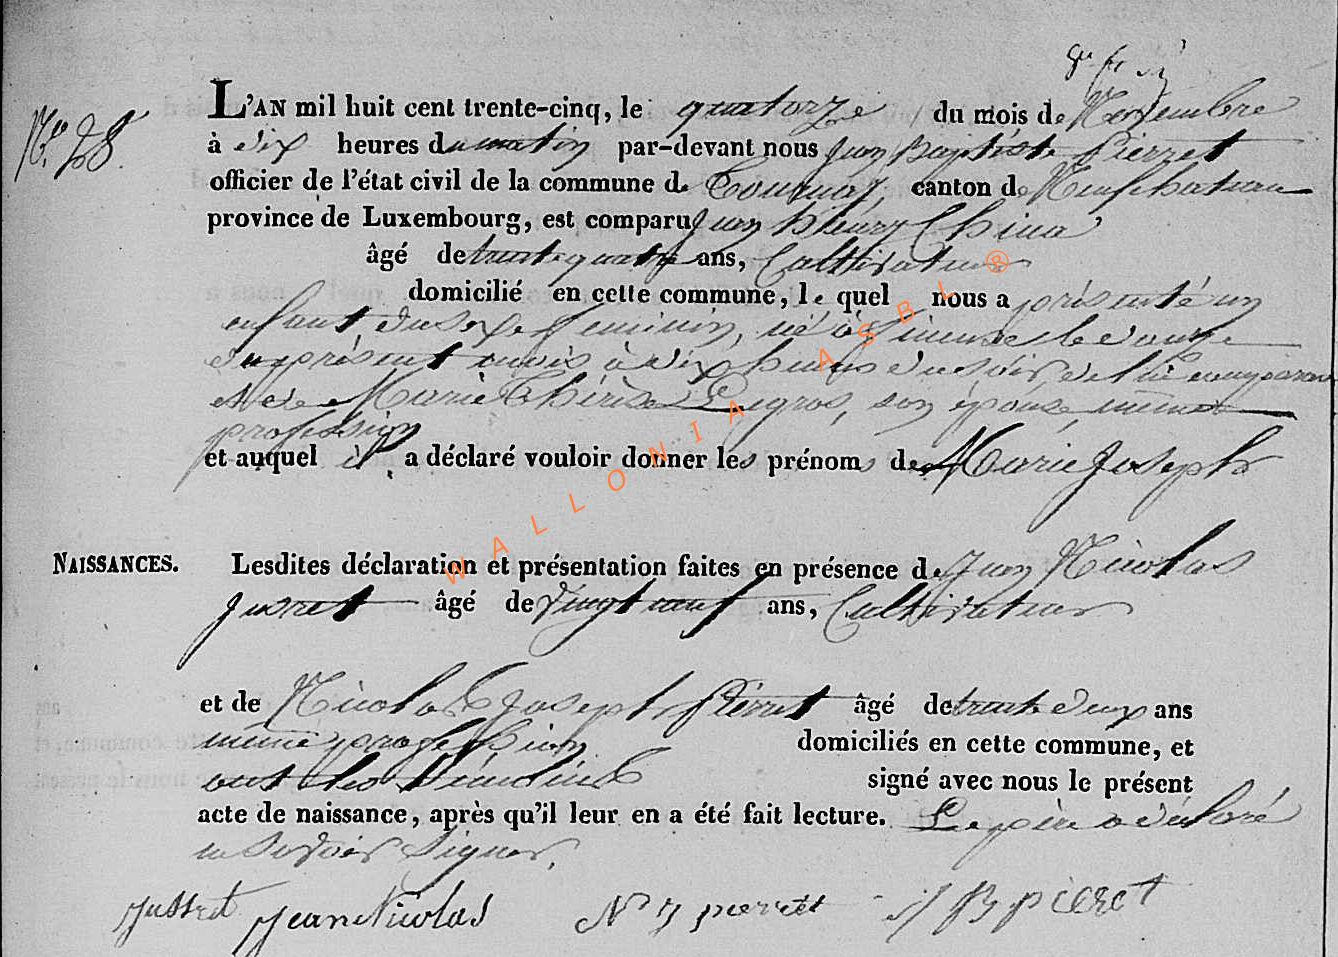 L'AN mil huit cent trente-cinq, le quatorze du mois de Novembre
No. 28.
à dix heures du matin par-devant nous Jean Baptiste Pierret
officier de l'état civil de la commune de Tournay, canton de Neufchateau
province de Luxembourg, est comparu Jean Henry China
âgé de trente quatre ans, Cultivateur
domicilié en cette commune, le quel nous a présenté un
enfant du sexe feminin, né à le douze
du présent mois à dix heures du soir, de lui comparant
et de Marie Thérèse Legros, son épouse même
profession
et auquel il a déclaré vouloir donner les prénoms de Marie Joseph
NAISSANCES. Lesdites déclaration et présentation faites en présence de Jean Nicolas
Jusret âgé de vingt neuf ans, Cultivateur
et de Nicolas Joseph Pierret âgé de trente deux ans
meme profession domiciliés en cette commune, et
ont les témoins signé avec nous le présent
acte de naissance, après qu'il leur en a été fait lecture. Le père a déclaré
ne savoir signer,
Jusret Jean Nicolas N J pierret J B pieret
WALLONIA ASBL ®